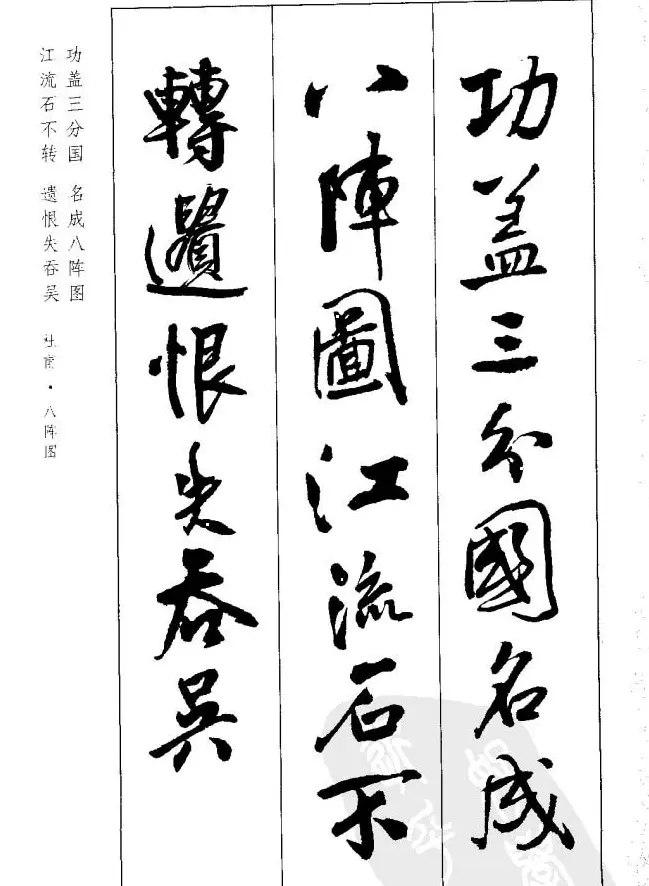 功盖三分國名成
八陣圖江流石不
轉遺恨失吞吳
功盖三分国 名成八阵图
江流石不转 遗恨失吞吴 杜甫·八阵图